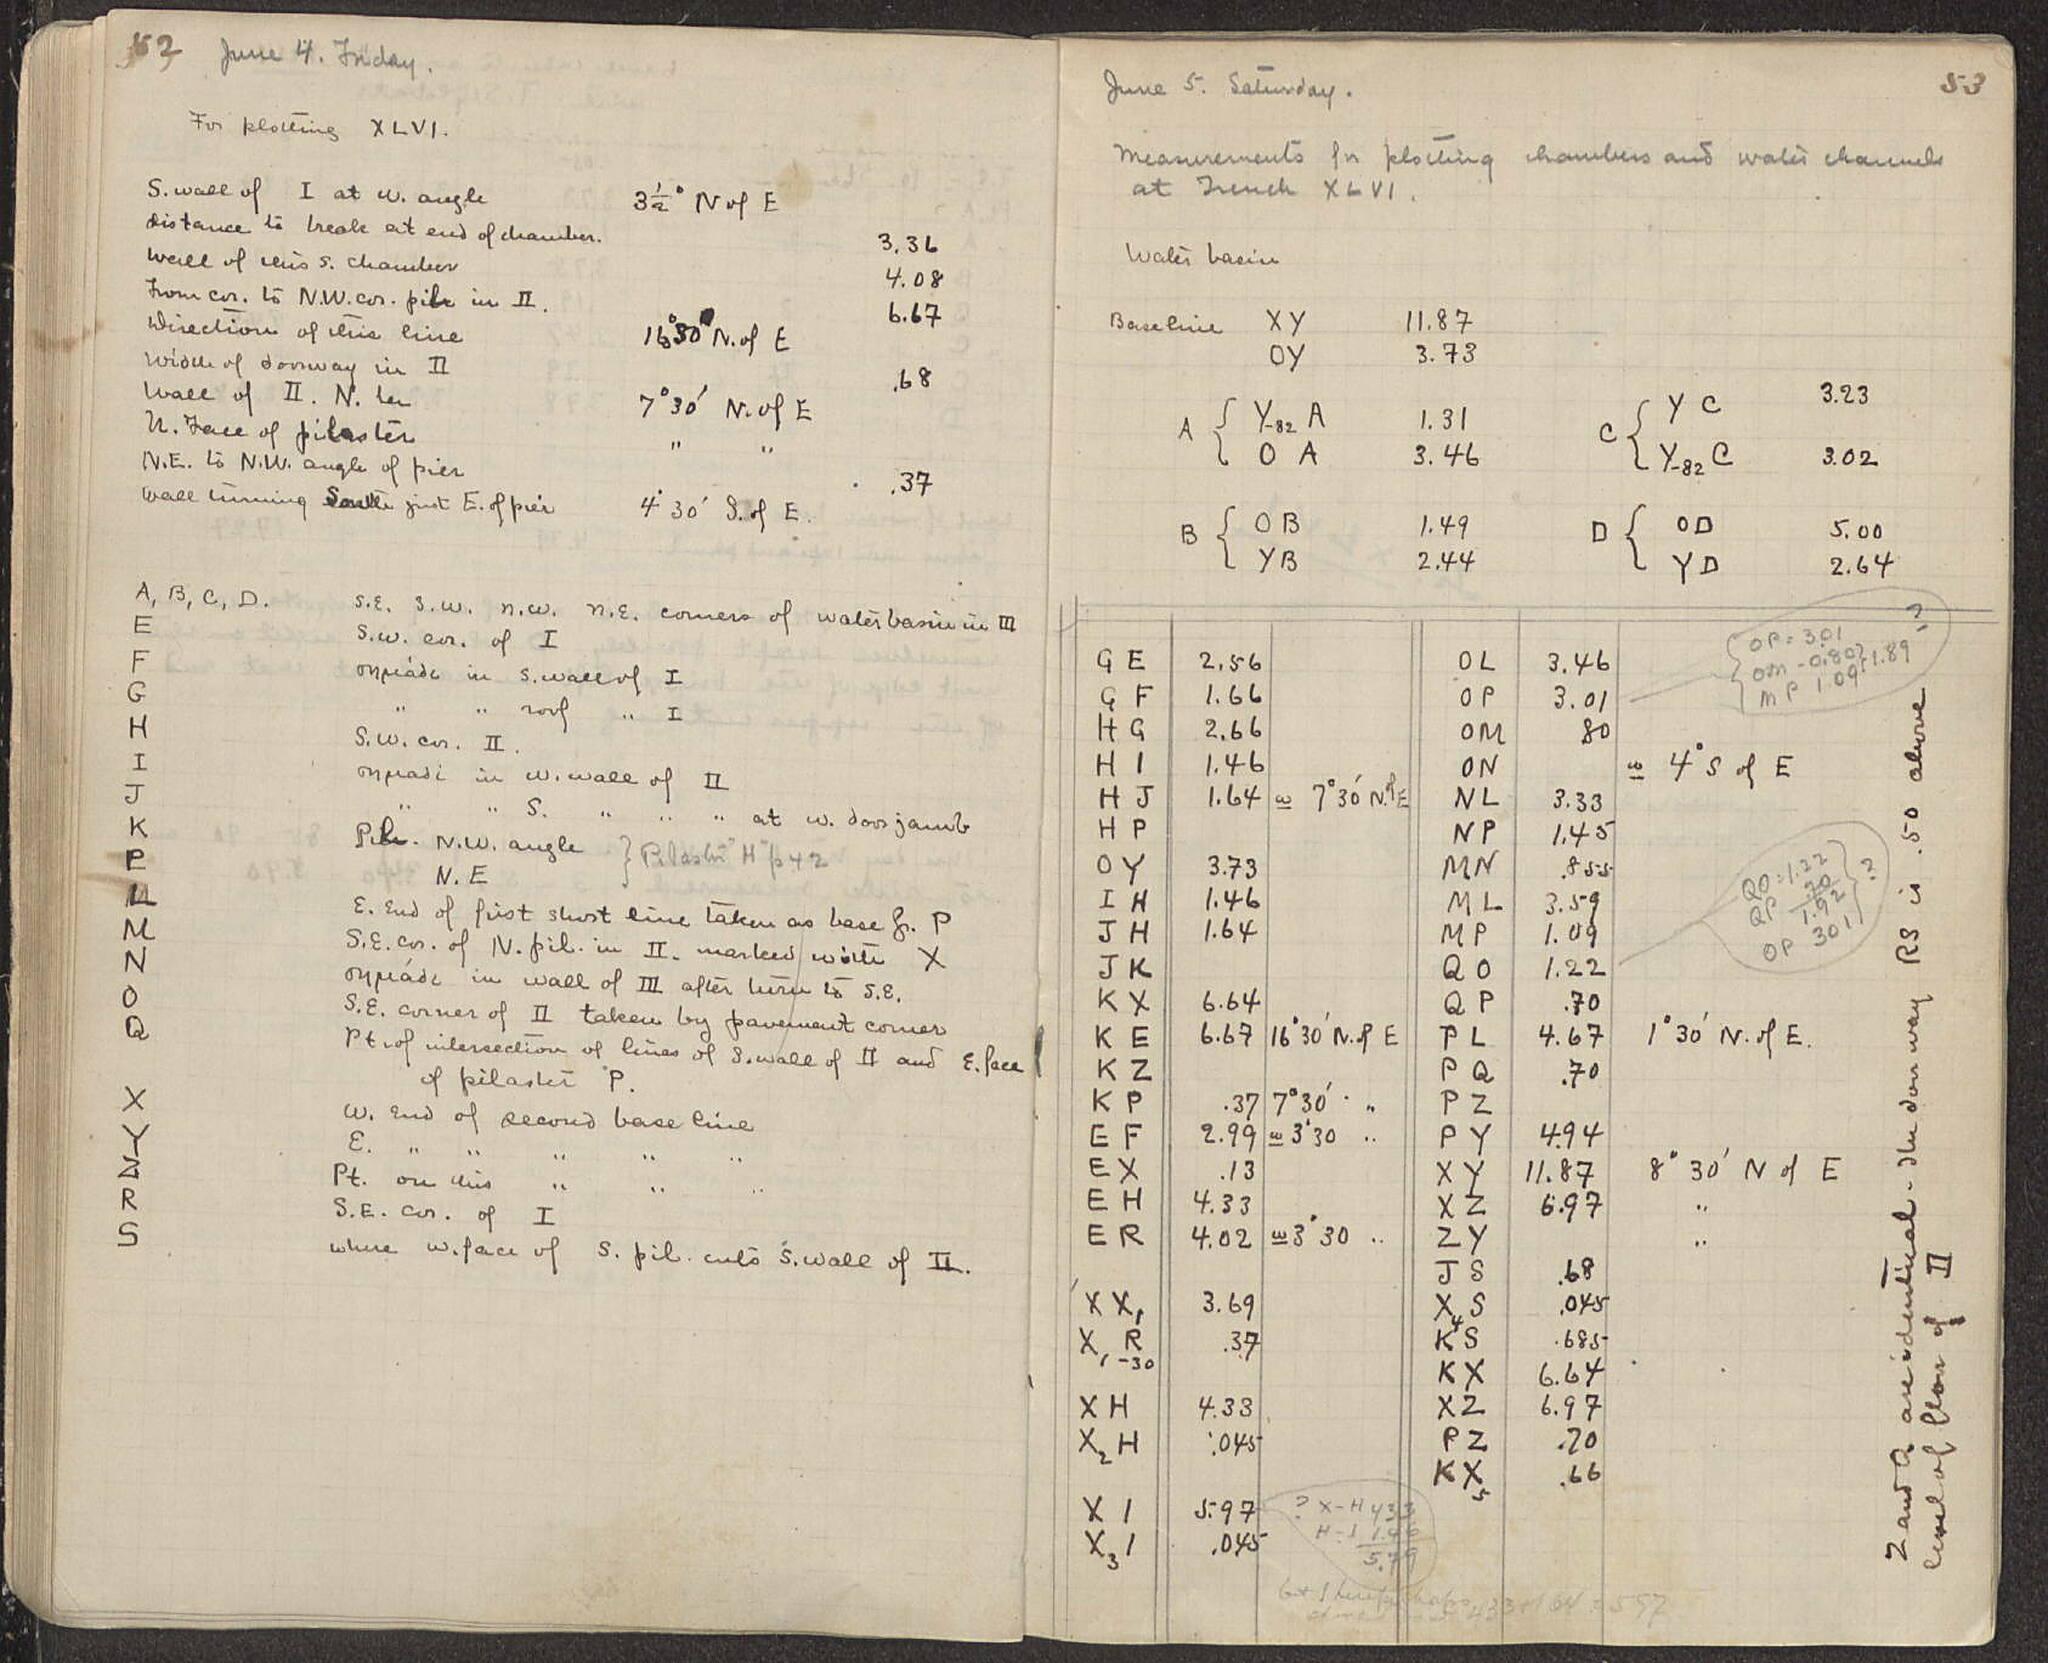 52 June 4. Friday.
For plotting XLVI.
S. wall of I at W. angle 3½° N of E
distance to break at end of chamber. 3.36
Wall of this S. chamber 4.08
From cor. to N.W. cor. pilr in II. 6.67
Direction of this line 16°30' N. of E
Width of doorway in II .68
Wall of II. N. ter 7°30' N. of E
N. Face of pilaster " "
N.E. to N.W. angle of pier .37
Wall turning South just E. of pier 4°30' S. of E.
A, B, C, D. S.E. S.W. N.W. N.E. corners of water basin in III
E S.W. cor. of I
F σημάδι in S. wall of I
G " " roof " I
H S.W. cor. II.
I σημάδι in W. wall of II
J " " S. " " " at W. door jamb
K Pilr. N.W. angle } Pilaster "H" p 42
P N.E
L E. End of first short line taken as base fr. P
M S.E. cor. of N. pil. in II. marked with X
N σημάδι in wall of III after turn to S.E.
O S.E. corner of II taken by pavement corner
Q Pt. of intersection of lines of S. wall of II and E. face
of pilaster P.
X W. End of second base line
Y E. " " " " "
Z Pt. on this " " "
R S.E. cor. of I
S where W. face of S. pil. cuts S. wall of II.
June 5. Saturday. 53
Measurements for plotting chambers and water channels
at Trench XLVI.
Water basin
Baseline XY 11.87
OY 3.73
A { Y-82 A 1.31
O A 3.46
C { Y C 3.23
Y-82 C 3.02
B { OB 1.49
YB 2.44
D { OD 5.00
YD 2.64
GE 2.56 OL 3.46
GF 1.66 OP 3.01
HG 2.66 OM 80
HI 1.46 ON = 4° S of E
HJ 1.64 = 7°30' N. of E NL 3.33
HP NP 1.45
OY 3.73 MN .855
IH 1.46 ML 3.59
JH 1.64 MP 1.09
JK QO 1.22
KX 6.64 QP .70
KE 6.67 16°30' N. of E PL 4.67 1°30' N. of E.
KZ PQ .70
KP .37 7°30' " PZ
EF 2.99 = 3°30 " PY 4.94
EX .13 XY 11.87 8°30' N of E
EH 4.33 XZ 6.97 "
ER 4.02 = 3°30 " ZY "
JS .68
XX1 3.69 X4S .045
X1 R-30 .37 KS .685
KX 6.64
XH 4.33 XZ 6.97
X2H .045 PZ .70
KX5 .66
XI 5.97
X3I .045
OP = 3.01
OM - 0.80 } 1.89 ?
MP 1.09
QO = 1.22
QP .70 } ?
1.92
OP 301
? X-H 433
H-I 1.46
5.79
433+164 = 597
Z and Q are identical - the doorway RS is .50 above
level of floor of II